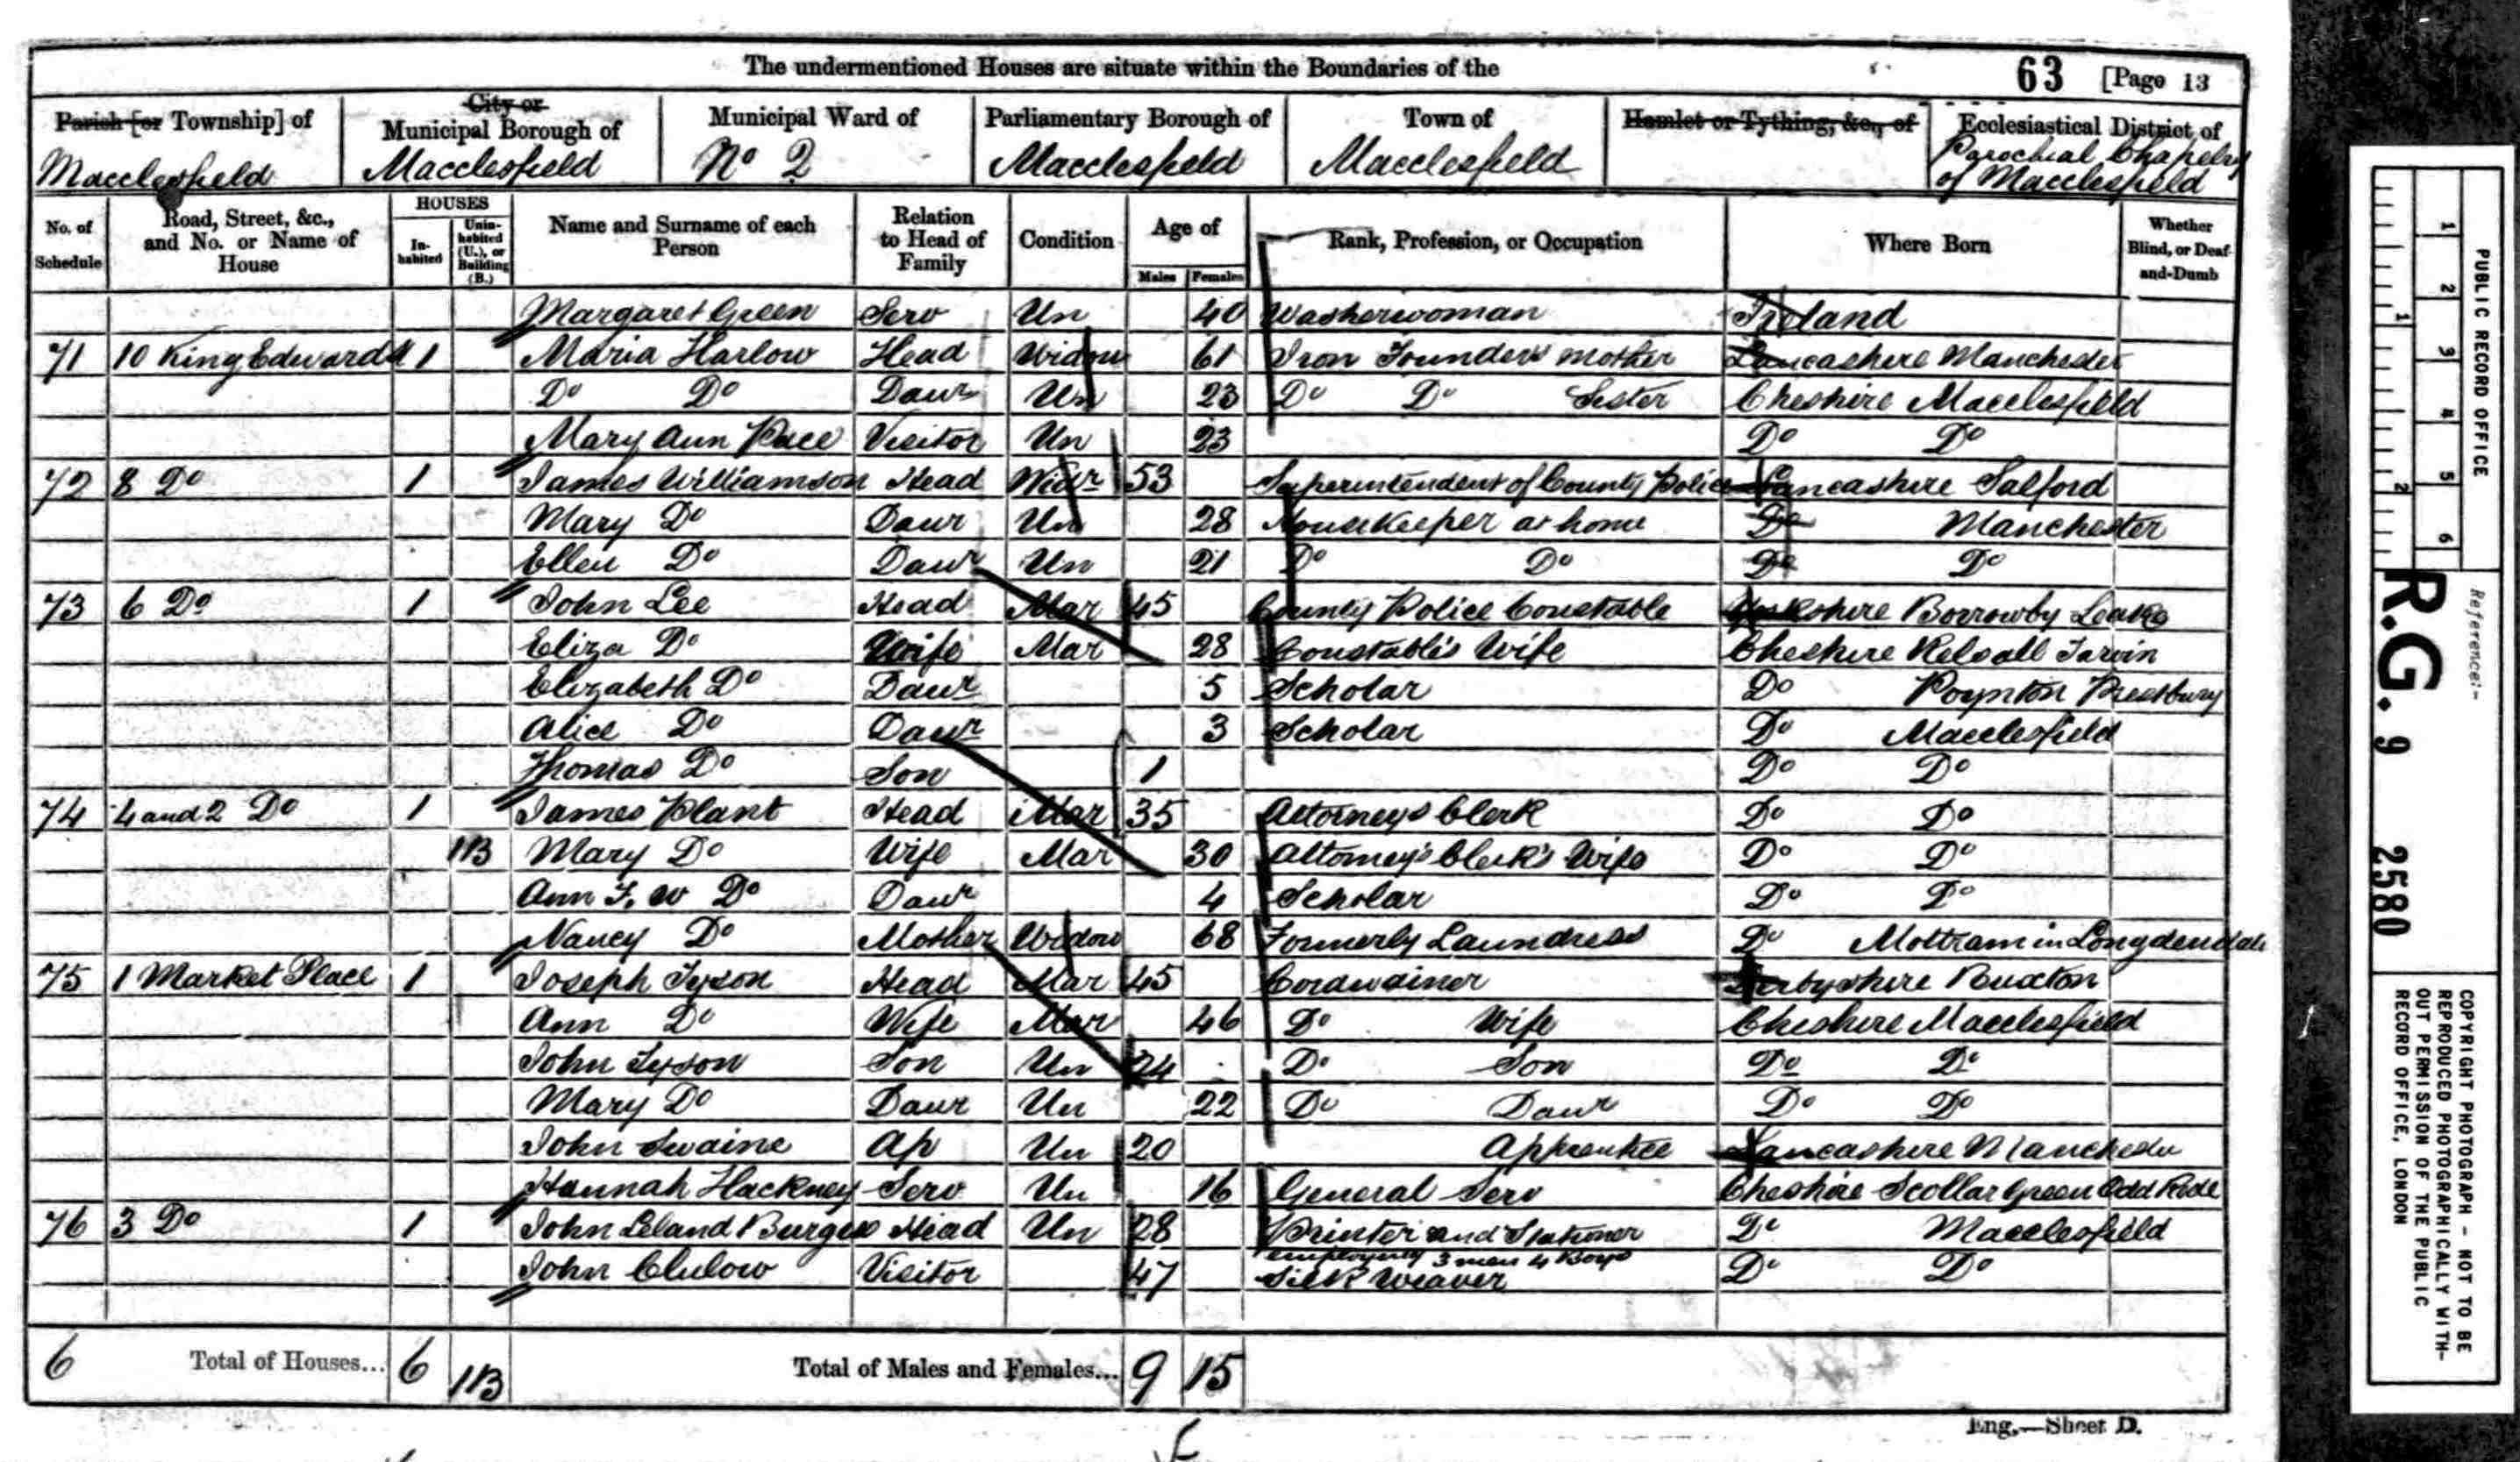 The undermentioned Houses are situate within the Boundaries of the 63 [Page 13
Parish [or Township] of City or Municipal Borough of Municipal Ward of Parliamentary Borough of Town of Hamlet or Tything, &c., of Ecclesiastical District of
Macclesfield Macclesfield No 2 Macclesfield Macclesfield Parochial Chapelry of Macclesfield
No. of Schedule Road, Street, &c., and No. or Name of House HOUSES Inhabited Uninhabited (U.), or Building (B.) Name and Surname of each Person Relation to Head of Family Condition Age of Males Females Rank, Profession, or Occupation Where Born Whether Blind, or Deaf-and-Dumb
Margaret Green Serv Un 40 Washerwoman Ireland
71 10 King Edward 1 Maria Harlow Head Widow 61 Iron Founders Mother Lancashire Manchester
Do Do Daur Un 23 Do Do Sister Cheshire Macclesfield
Mary Ann Pace Visitor Un 23 Do Do
72 8 Do 1 James Williamson Head Widr 53 Superintendent of County Police Lancashire Salford
Mary Do Daur Un 28 Housekeeper at home Do Manchester
Ellen Do Daur Un 21 Do Do Do Do
73 6 Do 1 John Lee Head Mar 45 County Police Constable Yorkshire Borrowby Leake
Eliza Do Wife Mar 28 Constable's Wife Cheshire Kelsall Tarvin
Elizabeth Do Daur 5 Scholar Do Poynton Prestbury
Alice Do Daur 3 Scholar Do Macclesfield
Thomas Do Son 1 Do Do
74 4 and 2 Do 1 James Plant Head Mar 35 Attorney's Clerk Do Do
1B Mary Do Wife Mar 30 Attorney's Clerk's Wife Do Do
Ann F. W Do Daur 4 Scholar Do Do
Nancy Do Mother Widow 68 Formerly Laundress Do Mottram in Longdendale
75 1 Market Place 1 Joseph Tyson Head Mar 45 Cordwainer Derbyshire Buxton
Ann Do Wife Mar 46 Do Wife Cheshire Macclesfield
John Tyson Son Un 24 Do Son Do Do
Mary Do Daur Un 22 Do Daur Do Do
John Swaine Ap Un 20 Apprentice Lancashire Manchester
Hannah Hackney Serv Un 16 General Serv Cheshire Scollar Green Odd Rode
76 3 Do 1 John Leland Burgess Head Un 28 Printer and Stationer Do Macclesfield
employing 3 men 4 Boys
John Clulow Visitor 47 Silk Weaver Do Do
6 Total of Houses... 6 1B Total of Males and Females... 9 15
Eng.—Sheet D.
PUBLIC RECORD OFFICE
1 2 3 4 5 6
1 2
Reference:-
R.G. 9 2580
COPYRIGHT PHOTOGRAPH - NOT TO BE
REPRODUCED PHOTOGRAPHICALLY WITH-
OUT PERMISSION OF THE PUBLIC
RECORD OFFICE, LONDON